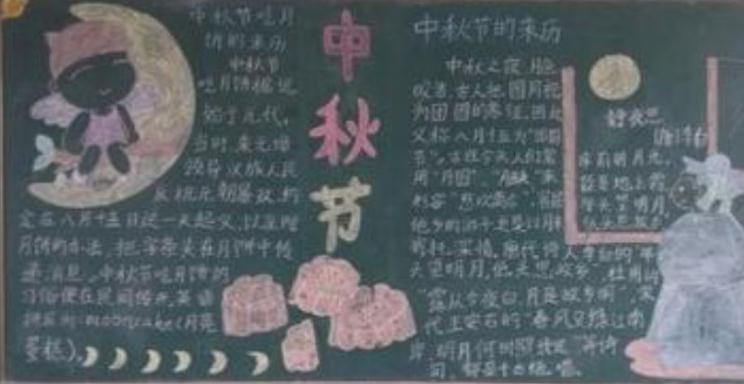 中秋节吃月
饼的来历
中秋节
吃月饼相传
始于元代，
当时，朱元璋
领导汉族人民
反抗元朝暴政，约
定在八月十五日这一天起义，以互赠
月饼的办法，把字条夹在月饼中传
递消息。中秋节吃月饼的
习俗便在民间传开，英语
mooncake（月亮
蛋糕）。
中
秋
节
中秋节的来历
中秋之夜，月色
皎洁，古人把圆月视
为团圆的象征，因此
又称八月十五为
节"。古往今来，人们常
用"月圆"、"月缺"来
形容"悲欢离合"，
他乡的游子更是以月
寄托深情。唐代诗人李白的"举
头望明月，低头思故乡"，杜甫的
"露从今夜白，月是故乡明"，宋
代王安石的"春风又绿江南
岸，明月何时照我还"等诗
句，都是千古绝唱。
静夜思
床前明月光，
疑是地上霜，
举头望明月，